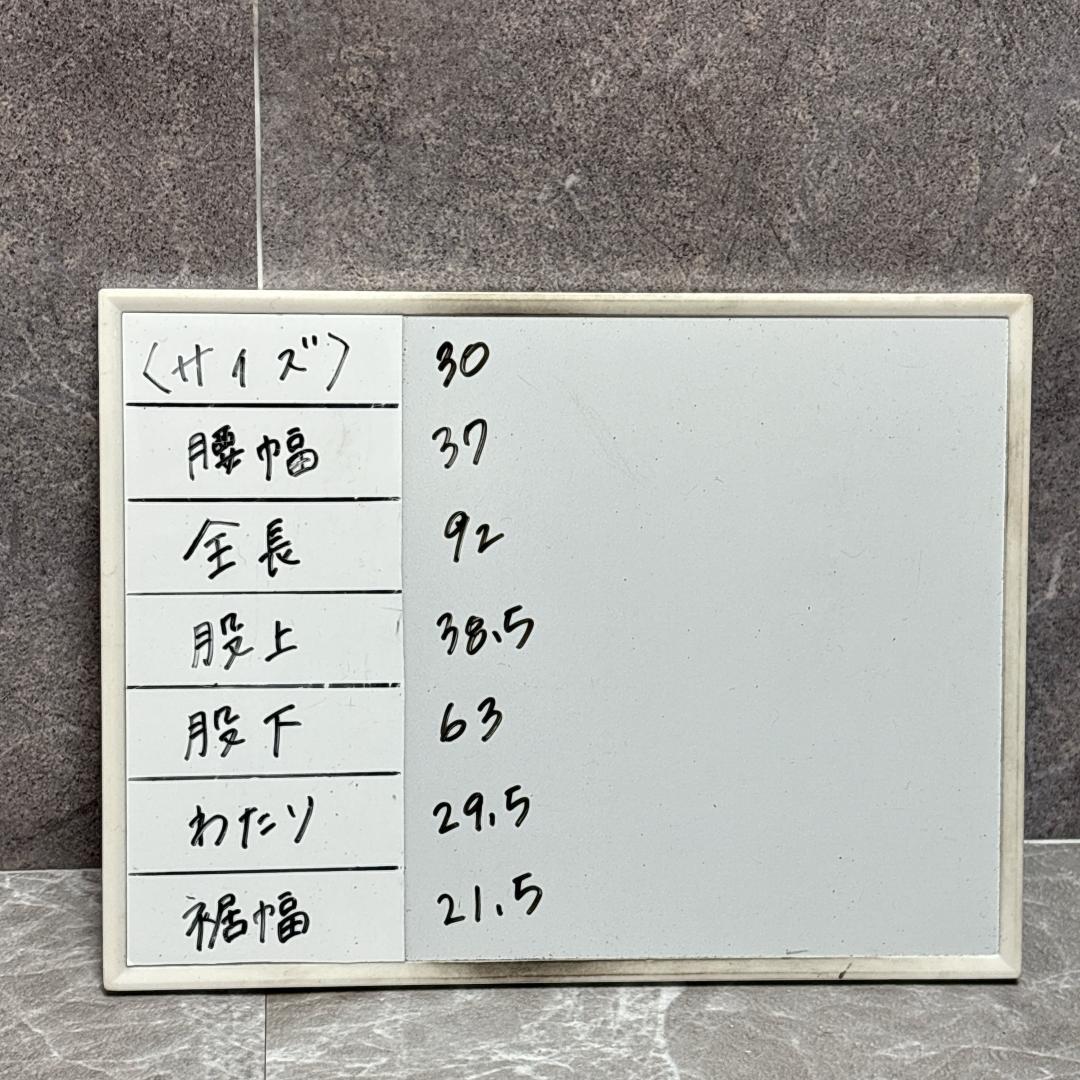 〈サイズ〉 30
腰幅 37
全長 92
股上 38.5
股下 63
わたり 29.5
裾幅 21.5